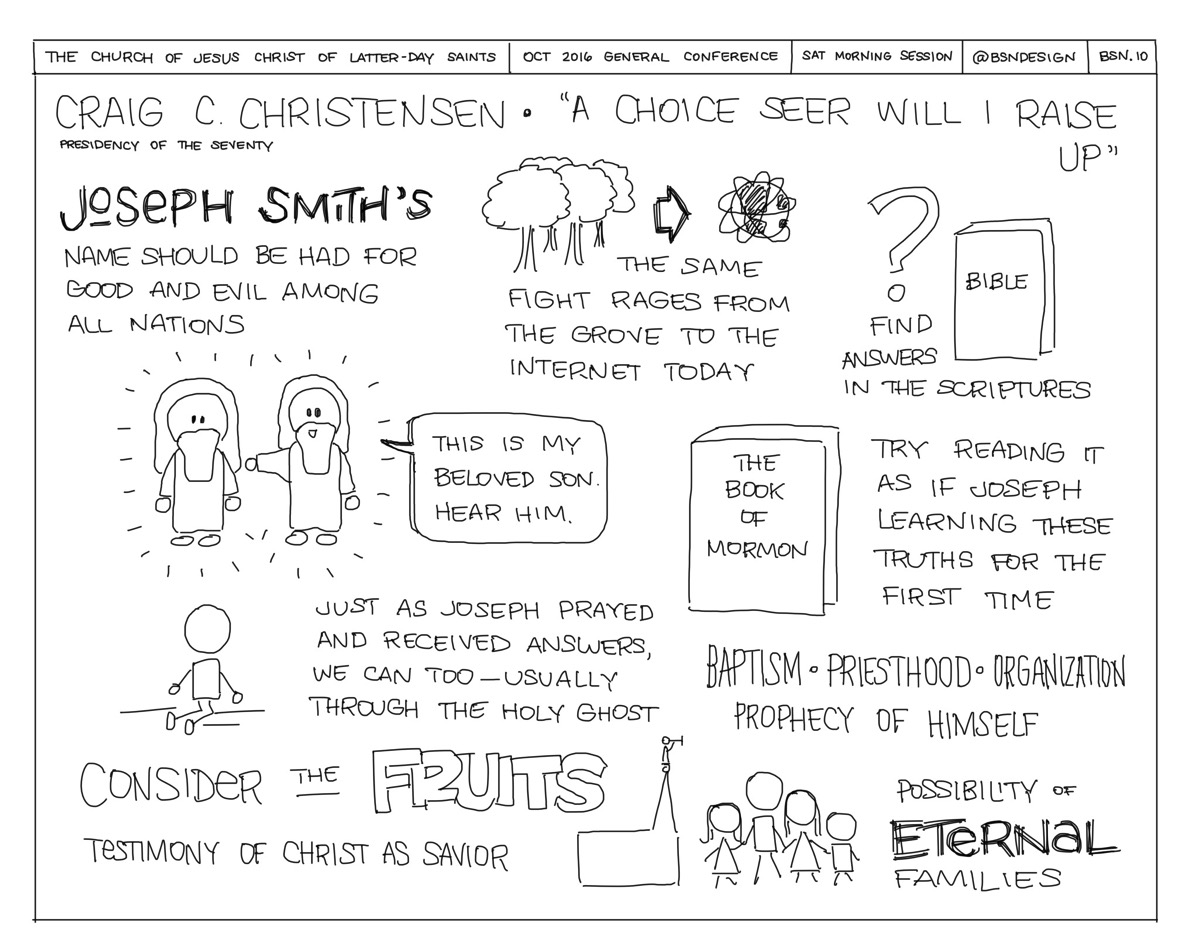 THE CHURCH OF JESUS CHRIST OF LATTER-DAY SAINTS
OCT 2016 GENERAL CONFERENCE
SAT MORNING SESSION
@BSNDESIGN
BSN.10
CRAIG C. CHRISTENSEN • "A CHOICE SEER WILL I RAISE
UP"
PRESIDENCY OF THE SEVENTY
JOSEPH SMITH'S
NAME SHOULD BE HAD FOR
GOOD AND EVIL AMONG
ALL NATIONS
THE SAME
FIGHT RAGES FROM
THE GROVE TO THE
INTERNET TODAY
?
BIBLE
FIND
ANSWERS
IN THE SCRIPTURES
THIS IS MY
BELOVED SON.
HEAR HIM.
THE
BOOK
OF
MORMON
TRY READING IT
AS IF JOSEPH
LEARNING THESE
TRUTHS FOR THE
FIRST TIME
JUST AS JOSEPH PRAYED
AND RECEIVED ANSWERS,
WE CAN TOO — USUALLY
THROUGH THE HOLY GHOST
BAPTISM • PRIESTHOOD • ORGANIZATION
PROPHECY OF HIMSELF
CONSIDER THE FRUITS
TESTIMONY OF CHRIST AS SAVIOR
POSSIBILITY OF
ETERNAL
FAMILIES